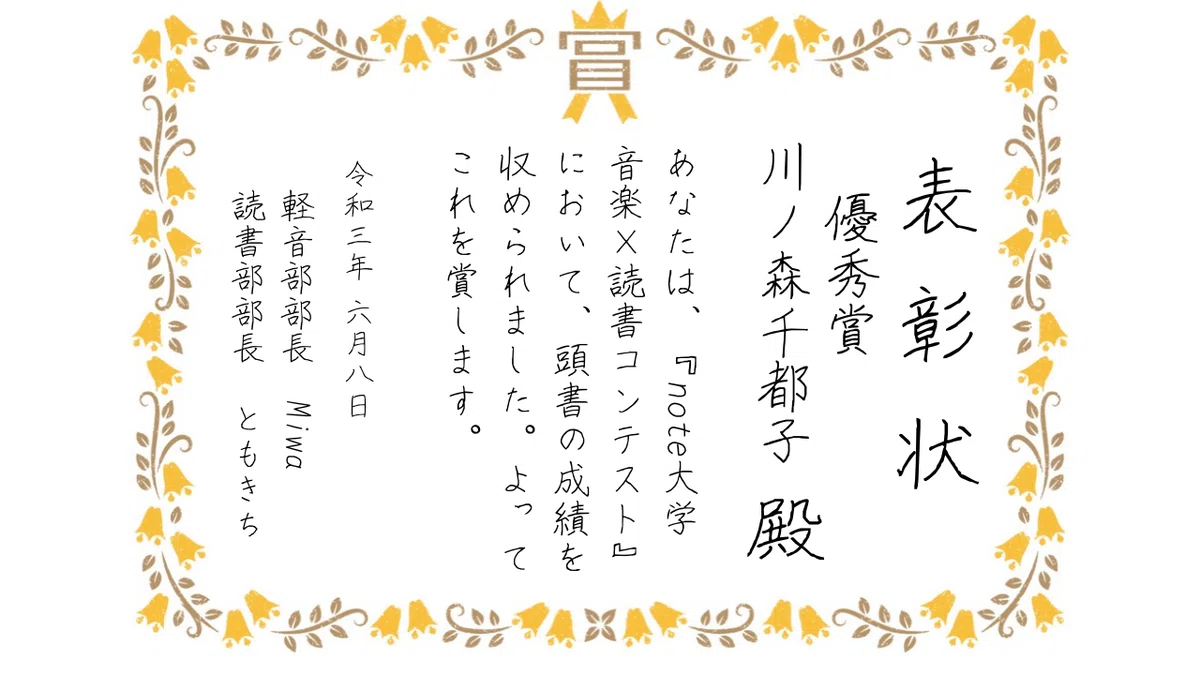 賞
表彰状
優秀賞
川ノ森千都子 殿
あなたは、『note大学
音楽×読書コンテスト』
において、頭書の成績を
収められました。よって
これを賞します。
令和三年 六月八日
軽音部部長 Miwa
読書部部長 ともきち